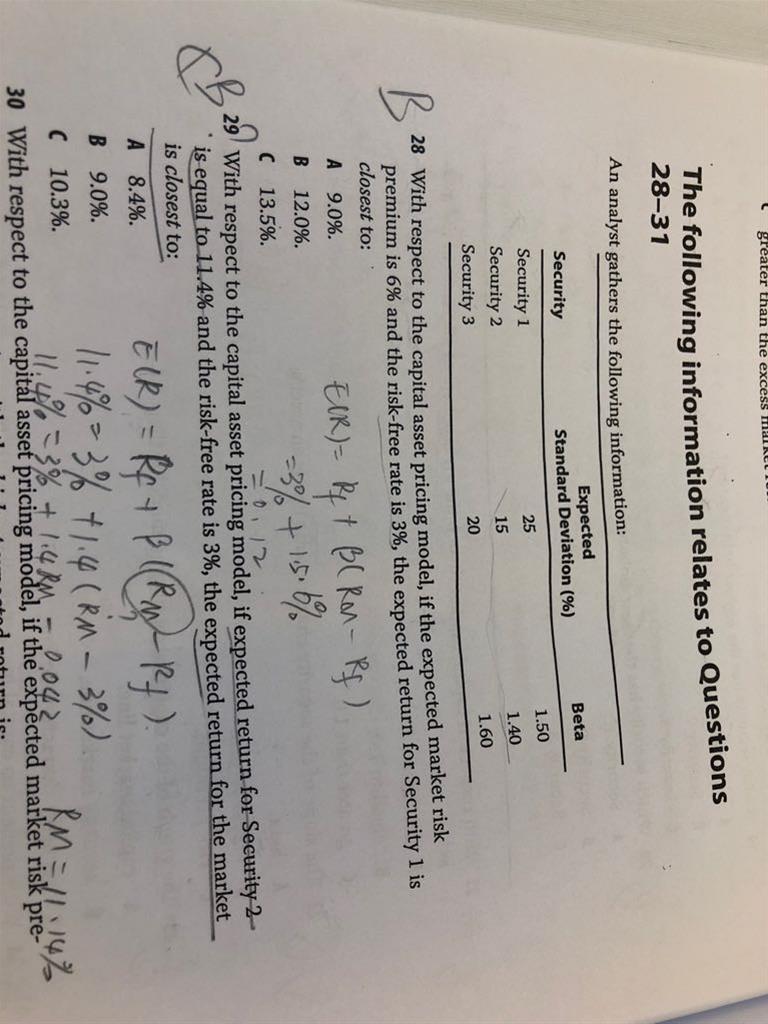 greater than the excess market
The following information relates to Questions
28–31
An analyst gathers the following information:
Security Expected Standard Deviation (%) Beta
Security 1 25 1.50
Security 2 15 1.40
Security 3 20 1.60
B
28 With respect to the capital asset pricing model, if the expected market risk
premium is 6% and the risk-free rate is 3%, the expected return for Security 1 is
closest to:
A 9.0%.
B 12.0%.
C 13.5%.
E(R) = Rf + β(RM - Rf)
= 3% + 1.5·6%
= 0.12
B
29 With respect to the capital asset pricing model, if expected return for Security 2
is equal to 11.4% and the risk-free rate is 3%, the expected return for the market
is closest to:
A 8.4%.
B 9.0%.
C 10.3%.
E(R) = Rf + β(RM - Rf).
11.4% = 3% + 1.4(RM - 3%)
11.4% = 3% + 1.4RM - 0.042
RM = 11.14%
30 With respect to the capital asset pricing model, if the expected market risk pre-
return is: